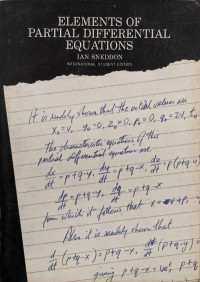 ELEMENTS OF
PARTIAL DIFFERENTIAL
EQUATIONS
IAN SNEDDON
INTERNATIONAL STUDENT EDITION
It is readily shown that the initial values are
x₀=v, y₀=0, z₀=0, p₀=0, q₀=2v, t₀
the characteristic equations of this
partial differential equation are
dx/dt = p+q-y, dy/dt = p+q-x, dz/dt = p(p+q-y)
dp/dt = p+q-y, dq/dt = p+q-x
from which it follows that x = v+p,
Also it is readily shown that
d/dt (p+q-x) = p+q-x, d/dt (p+q-y) =
giving p+q-x = veᵗ, p+q